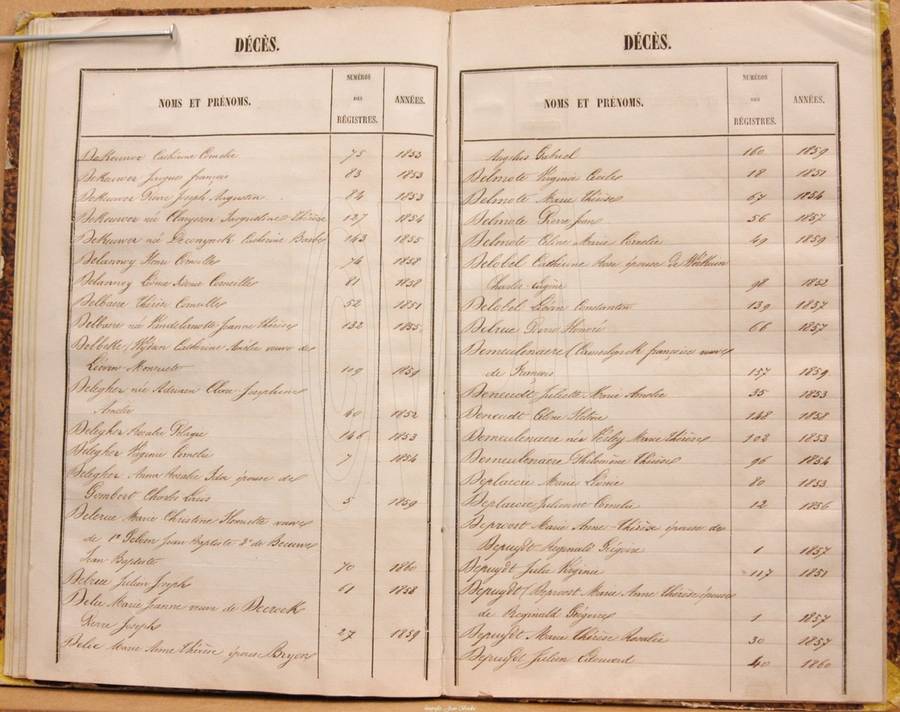 DÉCÈS.
NOMS ET PRÉNOMS. NUMÉROS DES RÉGISTRES. ANNÉES.
DeKeuwer Catherine Cornelie 75 1853
DeKeuwer Jacques François 83 1853
DeKeuwer Pierre Joseph Augustin 84 1853
DeKeuwer née Clarysson Jacqueline Thérèse 127 1854
DeKeuwer née Deconynck Catherine Barbe 143 1855
Delannoy Henri Corneille 74 1858
Delannoy Louis Corneille 81 1858
Delbaere Thérèse Cornelie 52 1851
Delbaere née Vandelanotte Jeanne Thérèse 132 1855
Catherine Amélie veuve de
Liévin 109 1859
Delegher née Adriaen Clara Joséphine
Amélie 40 1852
Delegher Rosalie Pélagie 146 1853
Delegher Régine Cornelie 7 1854
Delegher Anna Rosalie Ida épouse de
Gombert Charles Louis 5 1859
Delerue Marie Christine Henriette veuve
de 1° Jean Baptiste 2° de
Jean Baptiste 70 1860
Delrue Julien Joseph 61 1858
Delie Marie Jeanne veuve de Decrock
Pierre Joseph 27 1859
Delie Marie Anne Thérèse épouse Bryon
DÉCÈS.
NOMS ET PRÉNOMS. NUMÉROS DES RÉGISTRES. ANNÉES.
Angelus Gabriel 160 1859
Delmote Virginie Cécile 18 1851
Delmote Marie Thérèse 67 1854
Delmote Pierre Jean 56 1857
Delmote Eline Marie Cornelie 49 1859
Delobel Catherine Rose épouse de
Charles Eugène 98 1852
Delobel Liévin Constantin 139 1857
Delrue Pierre Honoré 66 1857
Demeulenaere ( françoise veuve
de 157 1859
Juliette Marie Amelie 35 1853
148 1858
Demeulenaere née Marie Thérèse 102 1853
Demeulenaere Philomène Thérèse 96 1854
Deplaecie Marie Louise 80 1853
Deplaecie Julienne Cornelie 12 1856
Deproost Marie Anne Thérèse épouse de
Depuydt Reginald Grégoire 1 1857
Depuydt Julie Régina 117 1851
Depuydt (Deproost Marie Anne Thérèse épouse
de Reginald Grégoire 1 1857
Depuydt Marie Thérèse Rosalie 30 1857
Depuydt Julien Edouard 40 1860